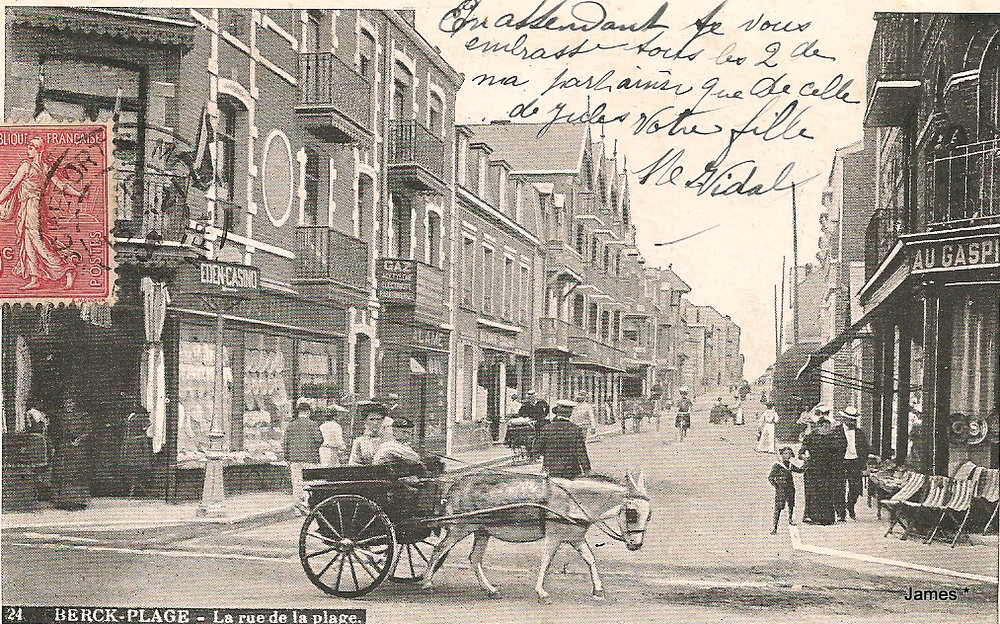 En attendant je vous
embrasse tous les 2 de
ma part ainsi que de celle
de Jules Votre fille
Me Vidal
RÉPUBLIQUE FRANÇAISE
POSTES
EDEN-CASINO
GAZ
ÉLECTRICITÉ
AU GASPI
24 BERCK-PLAGE - La rue de la plage.
James *